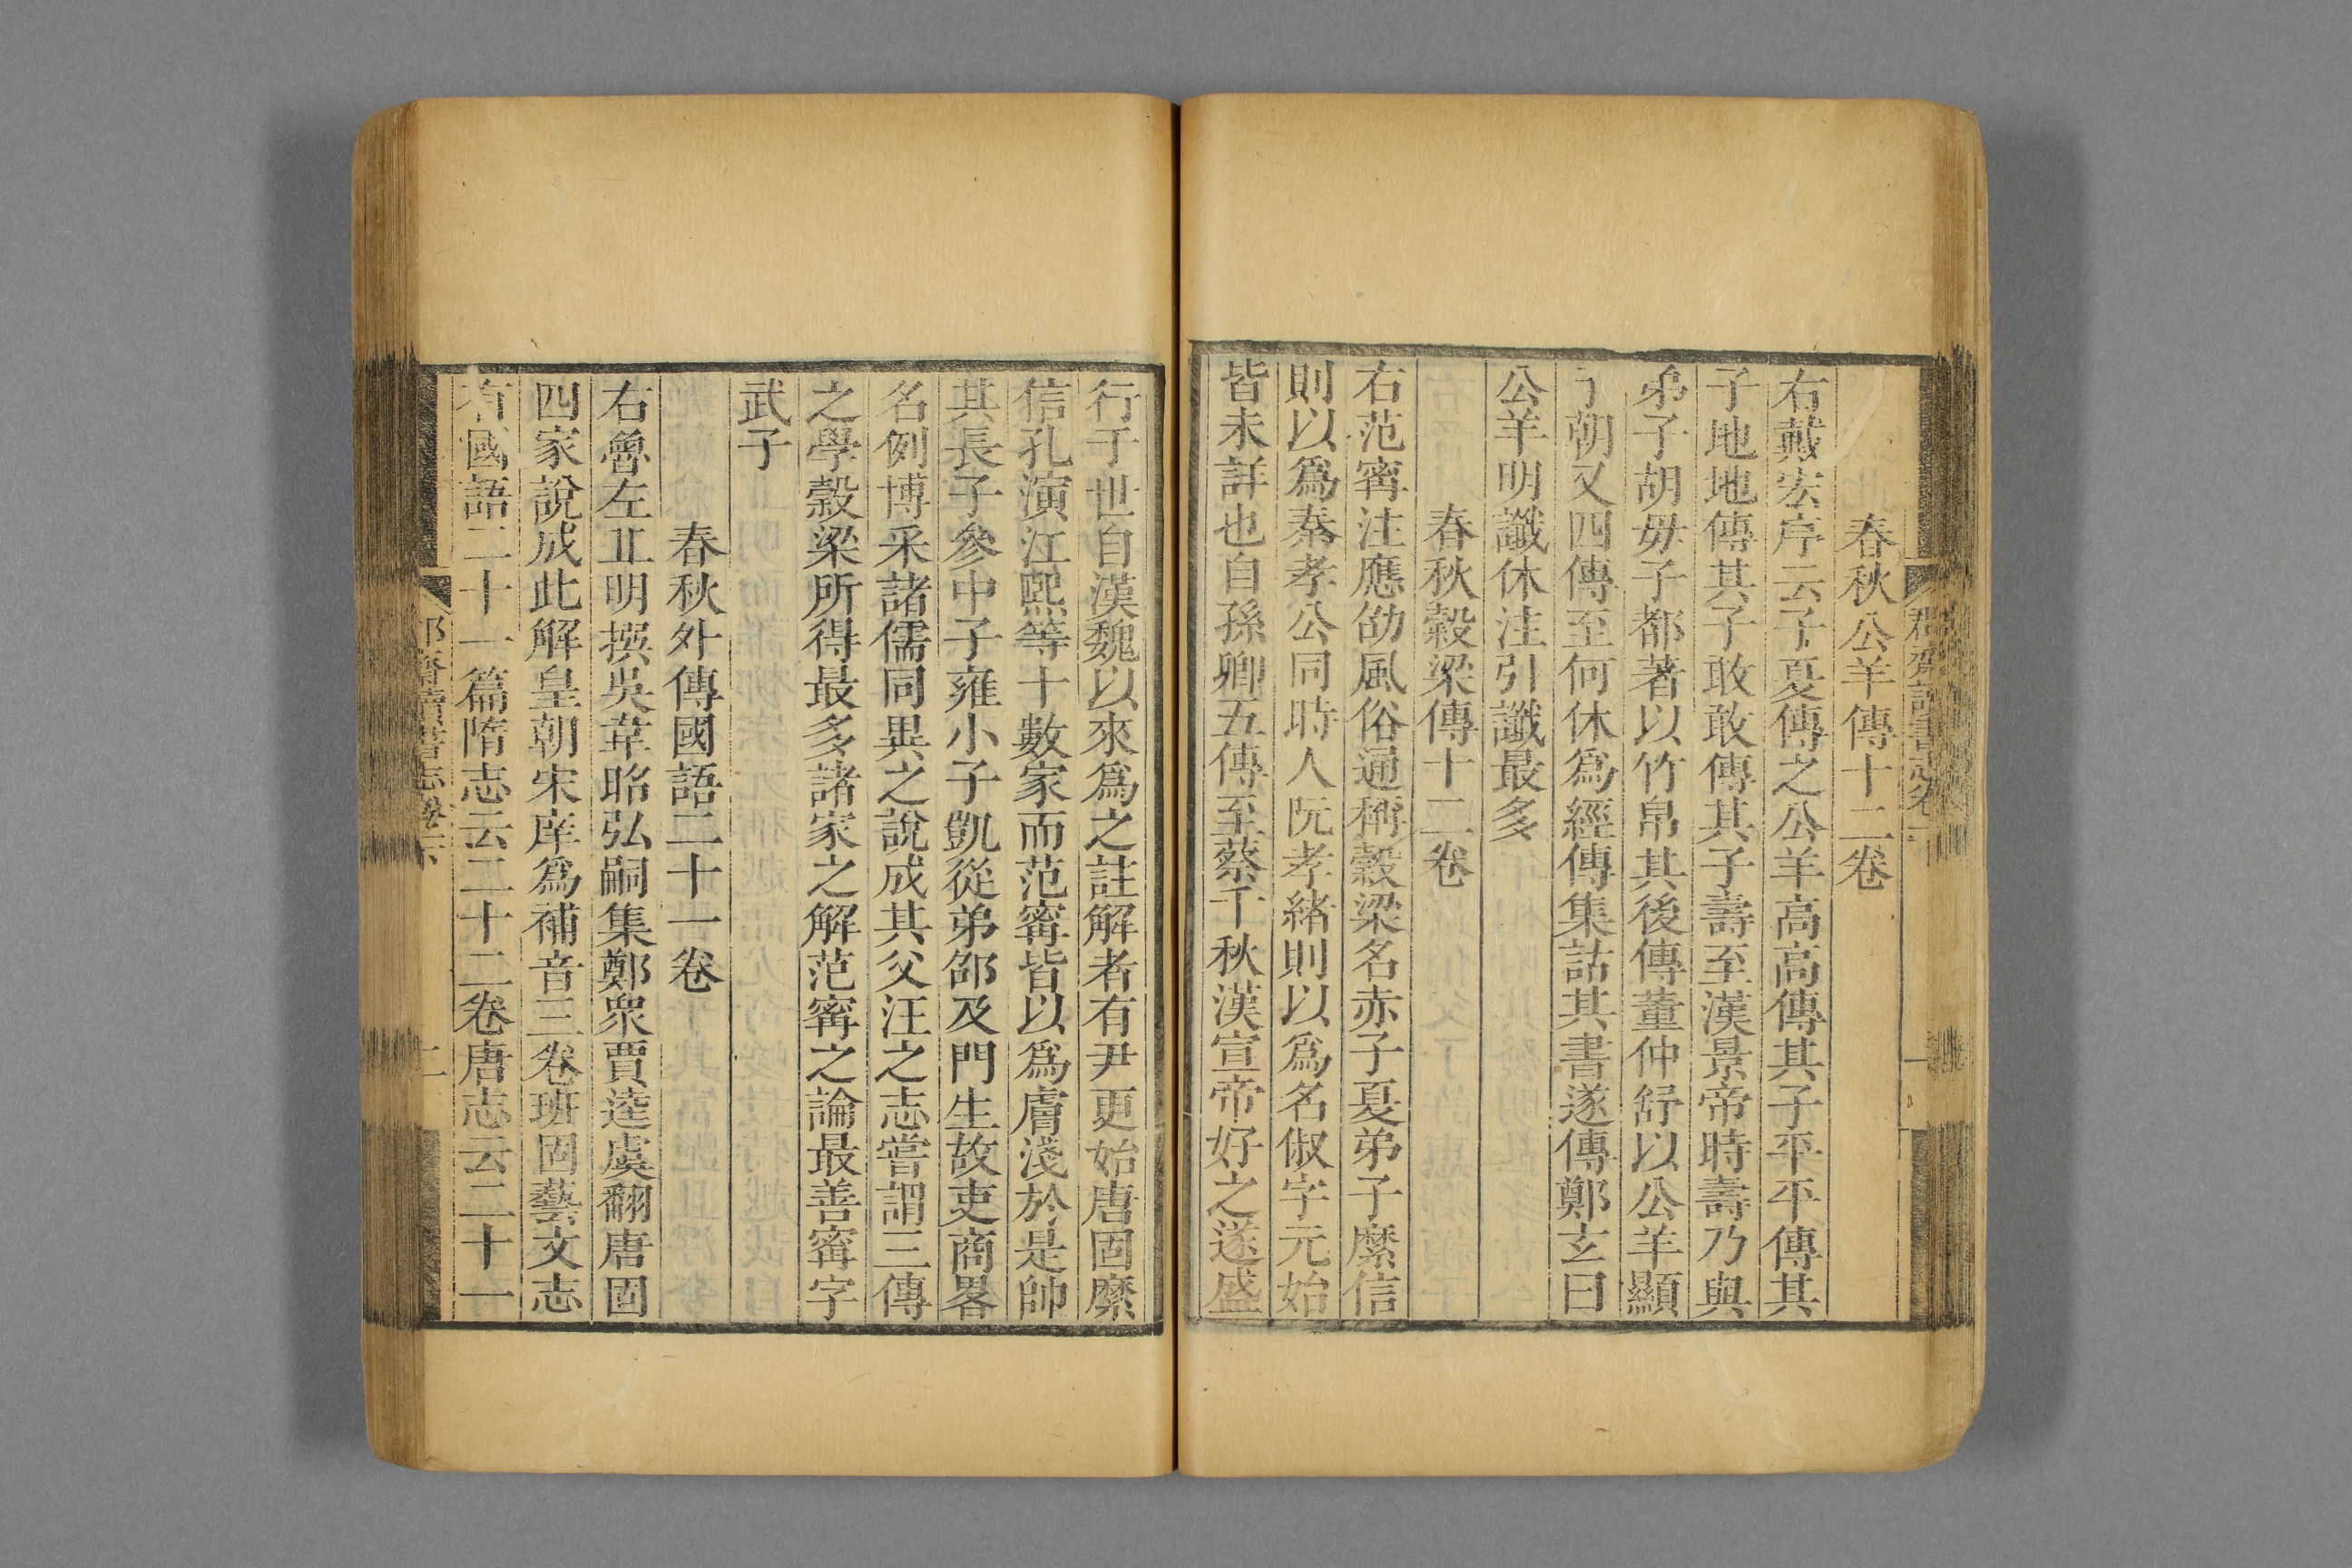 春秋公羊傳十二卷
右戴宏序云子夏傳之公羊高高傳其子平平傳其
子地地傳其子敢敢傳其子壽至漢景帝時壽乃與
弟子胡毋子都著以竹帛其後傳董仲舒以公羊顯
朝又四傳至何休爲經傳集詁其書遂傳鄭玄曰
公羊明讖休注引讖最多
春秋穀梁傳十二卷
右范寗注應劭風俗通稱穀梁名赤子夏弟子糜信
則以爲秦孝公同時人阮孝緒則以爲名俶字元始
皆未詳也自孫卿五傳至蔡千秋漢宣帝好之遂盛
行于世自漢魏以來爲之註解者有尹更始唐固糜
信孔演江熙等十數家而范寗皆以爲膚淺於是帥
其長子參中子雍小子凱從弟邵及門生故吏商畧
名例博采諸儒同異之說成其父汪之志嘗謂三傳
之學穀梁所得最多諸家之解范寗之論最善寗字
武子
春秋外傳國語二十一卷
右魯左丘明撰吳韋昭弘嗣集鄭衆賈逵虞翻唐固
四家說成此解皇朝宋庠爲補音三卷班固藝文志
有國語二十一篇隋志云二十二卷唐志云二十一